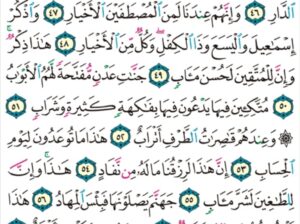 الدَّارِ ٤٦ وَإِنَّهُمْ عِندَنَا لَمِنَ الْمُصْطَفَيْنَ الْأَخْيَارِ ٤٧ وَاذْكُرْ
إِسْمَٰعِيلَ وَالْيَسَعَ وَذَا الْكِفْلِ وَكُلٌّ مِّنَ الْأَخْيَارِ ٤٨ هَٰذَا ذِكْرٌ
وَإِنَّ لِلْمُتَّقِينَ لَحُسْنَ مَـَٔابٍ ٤٩ جَنَّٰتِ عَدْنٍ مُّفَتَّحَةً لَّهُمُ الْأَبْوَٰبُ
٥٠ مُتَّكِـِٔينَ فِيهَا يَدْعُونَ فِيهَا بِفَٰكِهَةٍ كَثِيرَةٍ وَشَرَابٍ ٥١
۞ وَعِندَهُمْ قَٰصِرَٰتُ الطَّرْفِ أَتْرَابٌ ٥٢ هَٰذَا مَا تُوعَدُونَ لِيَوْمِ
الْحِسَابِ ٥٣ إِنَّ هَٰذَا لَرِزْقُنَا مَا لَهُ مِن نَّفَادٍ ٥٤ هَٰذَا وَإِنَّ
لِلطَّٰغِينَ لَشَرَّ مَـَٔابٍ ٥٥ جَهَنَّمَ يَصْلَوْنَهَا فَبِئْسَ الْمِهَادُ ٥٦